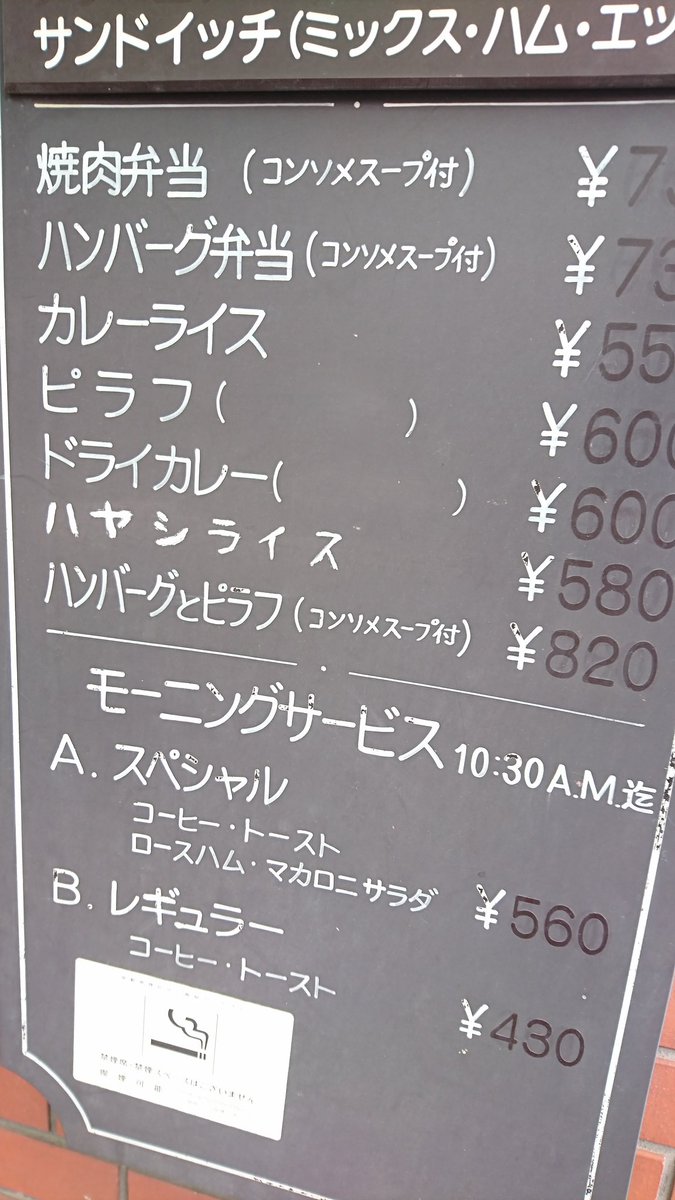 サンドイッチ(ミックス・ハム・エッ
焼肉弁当 (コンソメスープ付) ¥73
ハンバーグ弁当(コンソメスープ付) ¥73
カレーライス ¥55
ピラフ( ) ¥600
ドライカレー( ) ¥600
ハヤシライス ¥580
ハンバーグとピラフ(コンソメスープ付) ¥820
モーニングサービス 10:30A.M.迄
A. スペシャル
コーヒー・トースト
ロースハム・マカロニサラダ ¥560
B. レギュラー
コーヒー・トースト
¥430
禁煙席・禁煙スペースはございません
喫煙可能